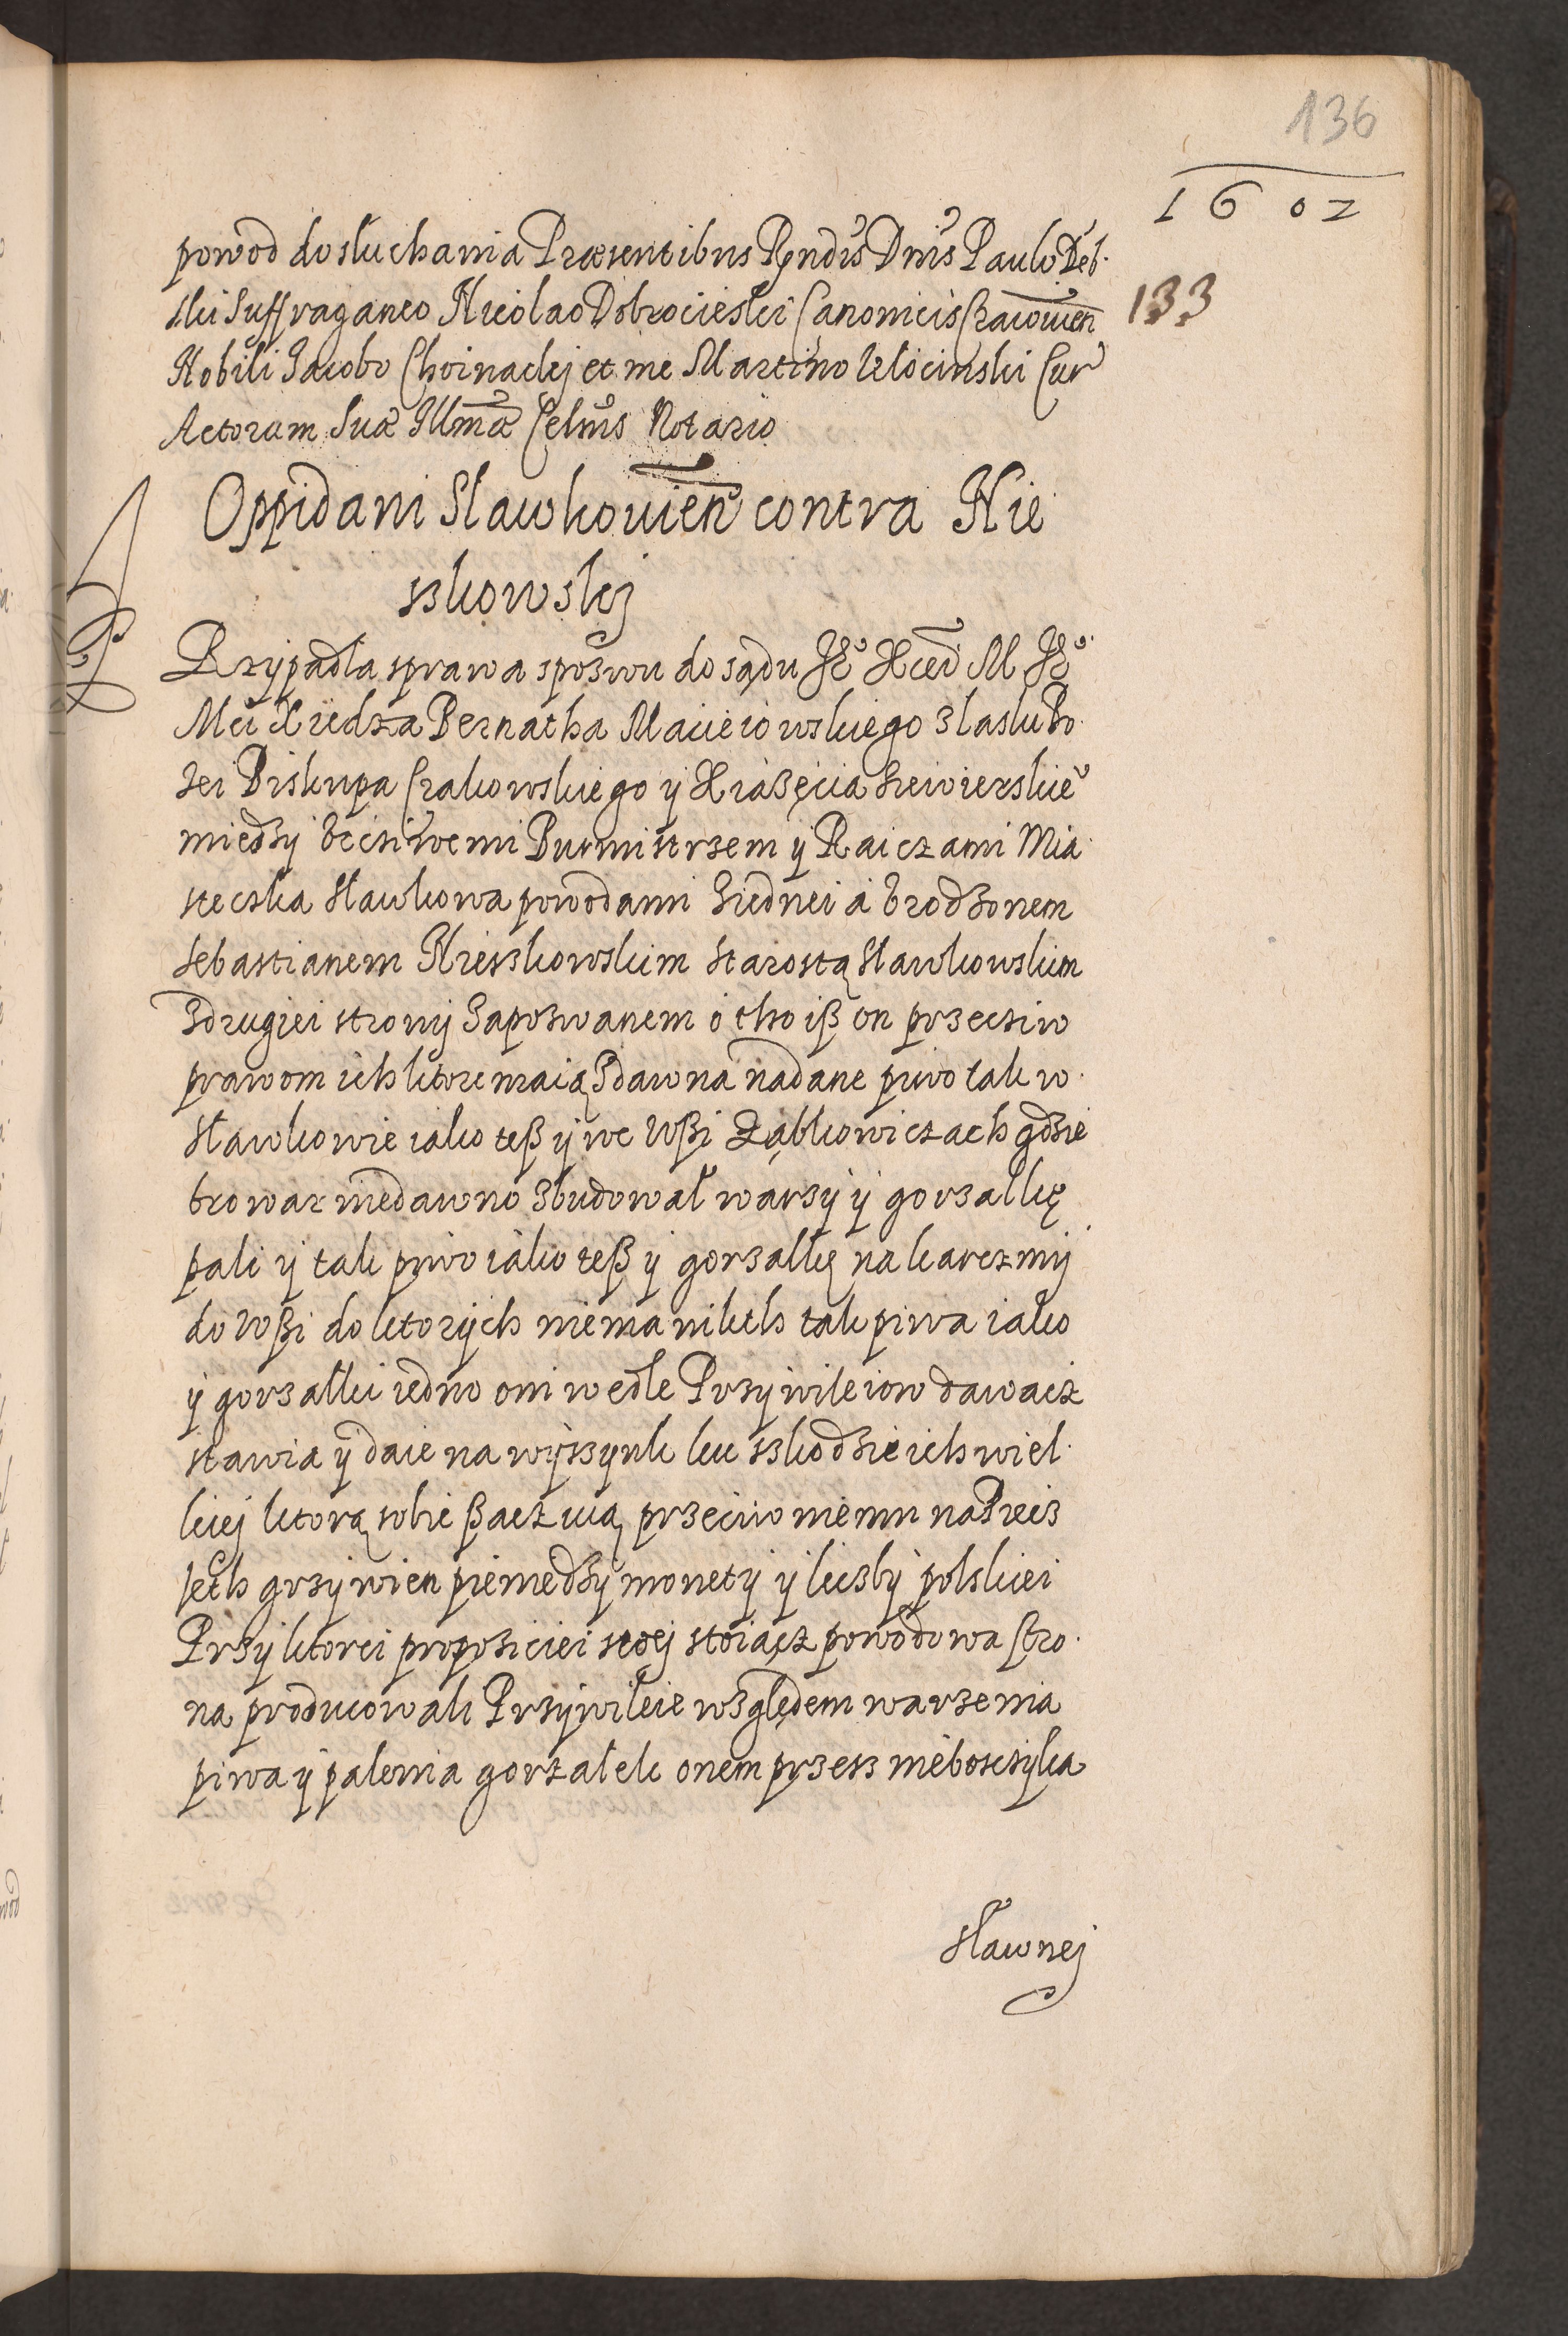 136
1602
133
powod do słuchania Præsentibus Rṇdis Dnis Paulo Deb
ski Suffraganeo Nicolao Dobrocieski Canonicis Cracovien
Nobili Jacobo Choinackj et me Martino Kłocinski Cur
Actorum Suæ Illmæ Celnis Notario
Oppidani Slawkovien contra Nie
sskowskj
Przypadła sprawa spozwu do sądu Je° Xcei M Je°
Mci Xiedza Bernatha Macieiowskiego z laski Bo
zei Biskupa Crakowskiego y Xiażęcia Siewierskie°
miedzy Vcciwemi Burmistrzem y Raiczami Mia
steczka Sławkowa powodami ziednei á Vrodzonem
Sebastianem Niesskowskim Starostą Sławkowskim
zdrugiei strony zapozwanem o tho iß on przeciw
prawom ich ktore maią zdawna nadane piwo tak w
Sławkowie iako teß y we Wßi Ząbkowiczach gdzie
browar niedawno zbudował warzy y gorzałkę
pali y tak piwo iako teß y gorzałkę na karczmy
do Wßi do ktorych niema nikth tak piwa iako
y gorzałki iedno oni wedle Przywileiow dawacz
stawia y daie na wysszynk ku sskodzie ich wiel
kiej ktorą sobie ßaczuią przeciwo niemu na Piecz
seth grzywien pieniedzy monety y liczby polskiei
Przy ktorei proposiciei swoj stoiącz powodowa stro
na producowali Przywileie względem warzenia
piwa y palenia gorzałek onem przess niebosczyka
sławnej